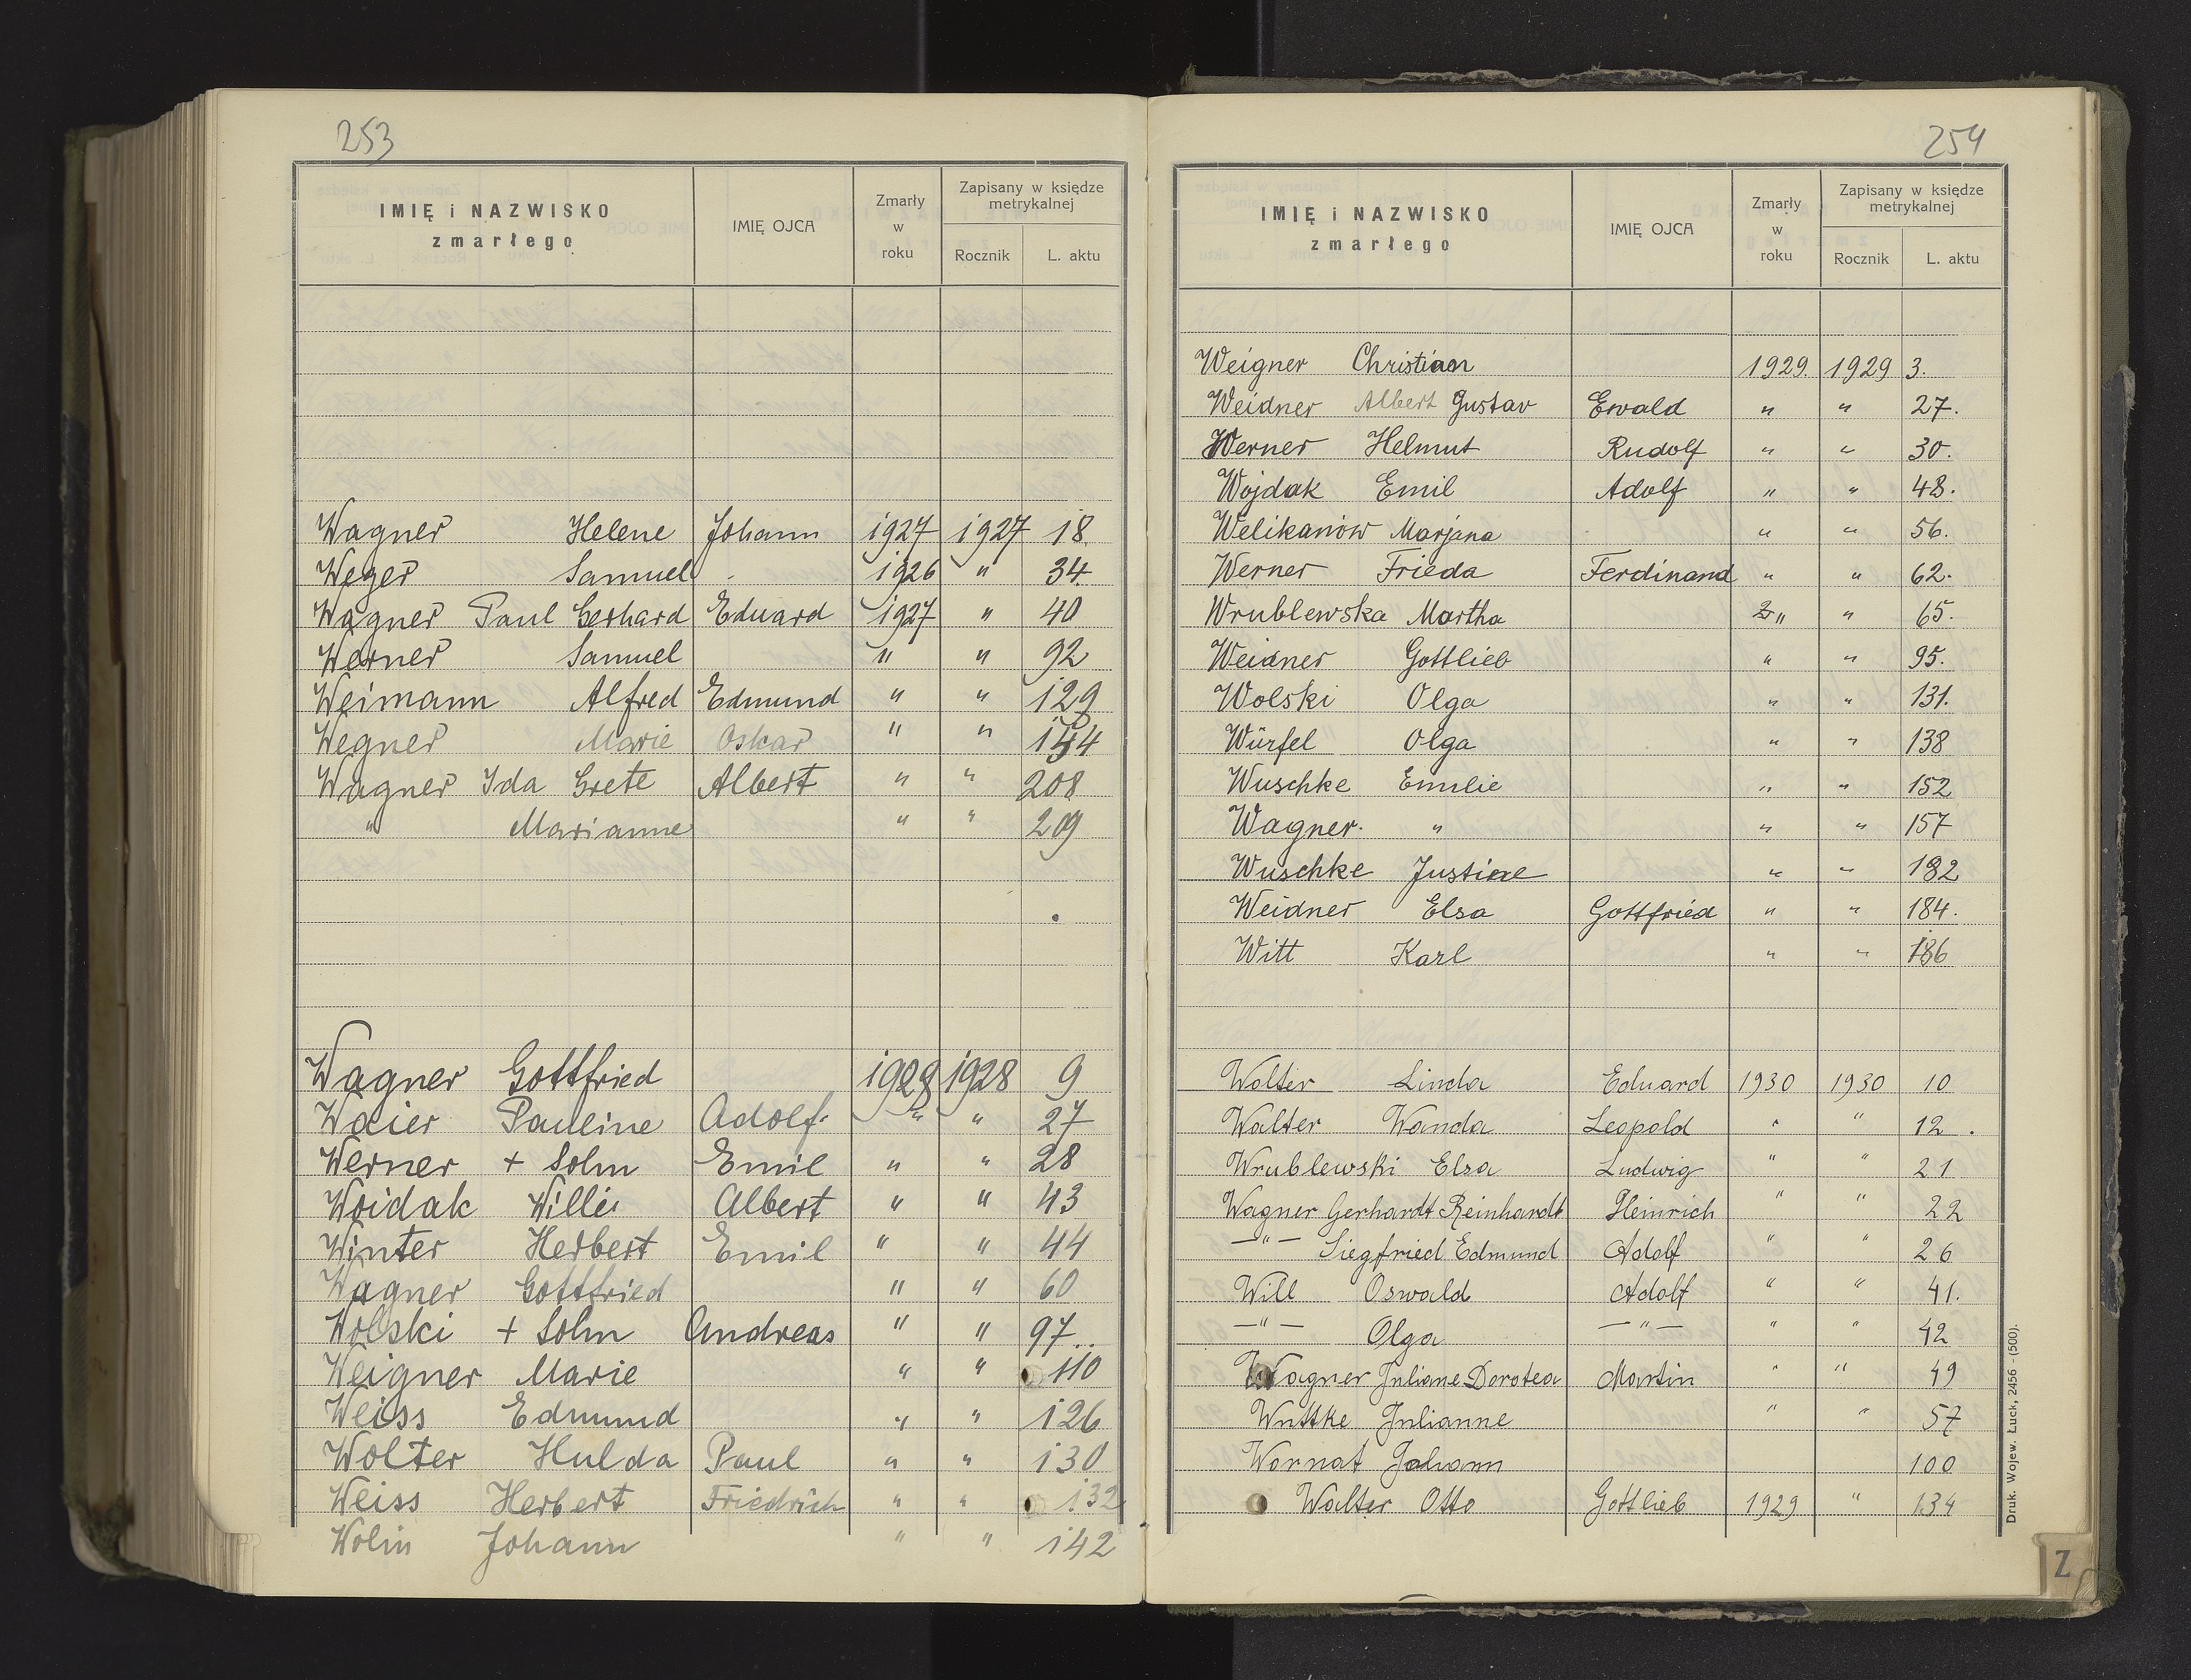 253
IMIĘ i NAZWISKO zmarłego IMIĘ OJCA Zmarły w roku Zapisany w księdze metrykalnej Rocznik L. aktu
Wagner Helene Johann 1927 1927 18
Weger Samuel - 1926 " 34.
Wagner Paul Gerhard Eduard 1927 " 40
Werner Samuel " " 92
Weimann Alfred Edmund " " 129
Wegner Marie Oskar " "
Wagner Ida Grete Albert " " 208
" Marianne " " 209
Wagner Gottfried 1928 1928 9
Waier Pauline Adolf. " " 27
Werner + Sohn Emil " " 28
Woidak Willi Albert " " 43
Winter Herbert Emil " " 44
Wagner Gottfried " " 60
Wolski + Sohn Andreas " " 97..
Weigner Marie " " 110
Weiss Edmund " " 126
Wolter Hulda Paul " " 130
Weiss Herbert Friedrich " " 132
Wolin Johann " " 142
254
IMIĘ i NAZWISKO zmarłego IMIĘ OJCA Zmarły w roku Zapisany w księdze metrykalnej Rocznik L. aktu
Weigner Christian 1929. 1929 3.
Weidner Albert Gustav Ewald " " 27.
Werner Helmut Rudolf " " 30.
Wojdak Emil Adolf " " 48.
Welikanow Marjana " " 56.
Werner Frieda Ferdinand " " 62.
Wrublewska Martha " " 65.
Weidner Gottlieb " " 95.
Wolski Olga " " 131.
Würfel Olga " " 138
Wuschke Emilie " " 152
Wagner. " " " 157
Wuschke Justine " " 182
Weidner Elsa Gottfried " " 184.
Witt Karl " " 186
Wolter Linda Eduard 1930 1930 10
Walter Wanda Leopold " " 12.
Wrublewski Elsa Ludwig " " 21
Wagner Gerhardt Reinhardt Heinrich " " 22
—"— Siegfried Edmund Adolf " " 26
Will Oswald Adolf " " 41.
—"— Olga —"— " " 42
Wagner Juliane Dorotea Martin " " 49
Wuttke Julianne " " 57
Wornat Johann 100
Walter Otto Gottlieb 1929 " 134
Druk. Wojew. Łuck, 2456 - (500).
Z